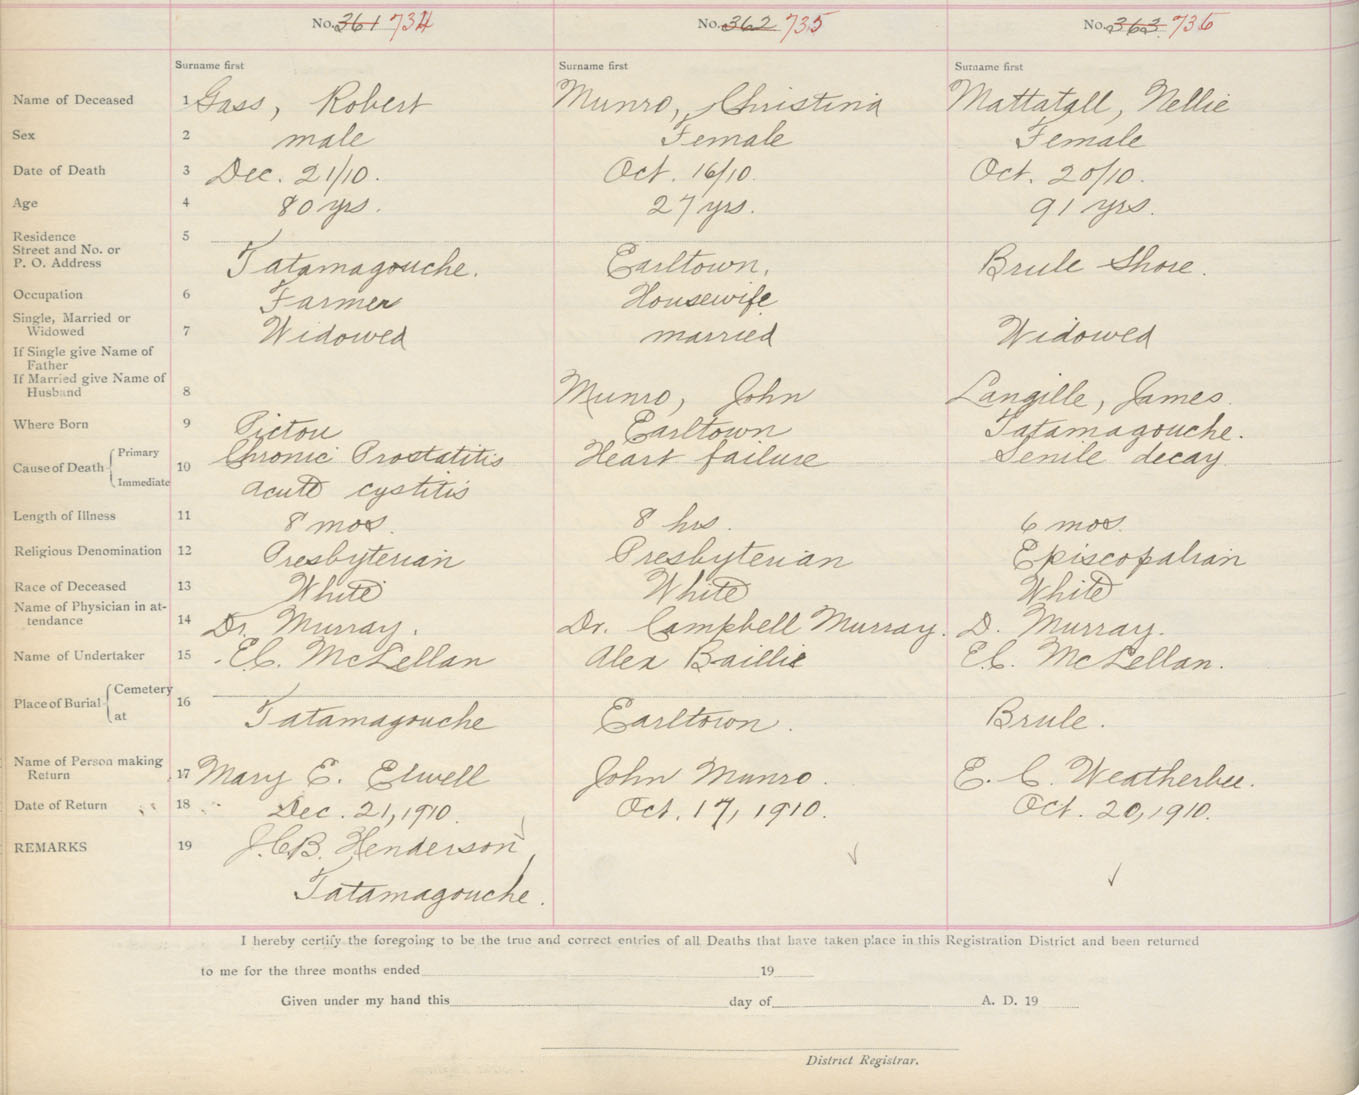 No. 361 734 No. 362 735 No. 363. 736
Surname first Surname first Surname first
Name of Deceased 1 Gass, Robert Munro, Christina Mattatall, Nellie
Sex 2 male Female Female
Date of Death 3 Dec. 21/10. Oct. 16/10 Oct. 20/10.
Age 4 80 yrs. 27 yrs. 91 yrs.
Residence 5
Street and No. or
P. O. Address Tatamagouche. Earltown. Brule Shore.
Occupation 6 Farmer Housewife
Single, Married or
Widowed 7 Widowed married Widowed
If Single give Name of
Father
If Married give Name of
Husband 8 Munro, John Langille, James.
Where Born 9 Pictou Earltown Tatamagouche.
Cause of Death Primary 10 Chronic Prostatitis Heart failure Senile decay
Immediate acute cystitis
Length of Illness 11 8 mos. 8 hrs. 6 mos.
Religious Denomination 12 Presbyterian Presbyterian Episcopalian
Race of Deceased 13 White White White
Name of Physician in at-
tendance 14 Dr. Murray. Dr. Campbell Murray. D. Murray.
Name of Undertaker 15 E.C. McLellan Alex Baillie E.C. McLellan.
Place of Burial Cemetery 16
at Tatamagouche Earltown. Brule.
Name of Person making
Return 17 Mary E. Elwell John Munro. E. C. Weatherbee.
Date of Return 18 Dec. 21, 1910. Oct. 17, 1910. Oct. 20, 1910.
REMARKS 19 J.C.B. Henderson,
Tatamagouche.
I hereby certify the foregoing to be the true and correct entries of all Deaths that have taken place in this Registration District and been returned
to me for the three months ended 19
Given under my hand this day of A. D. 19
District Registrar.